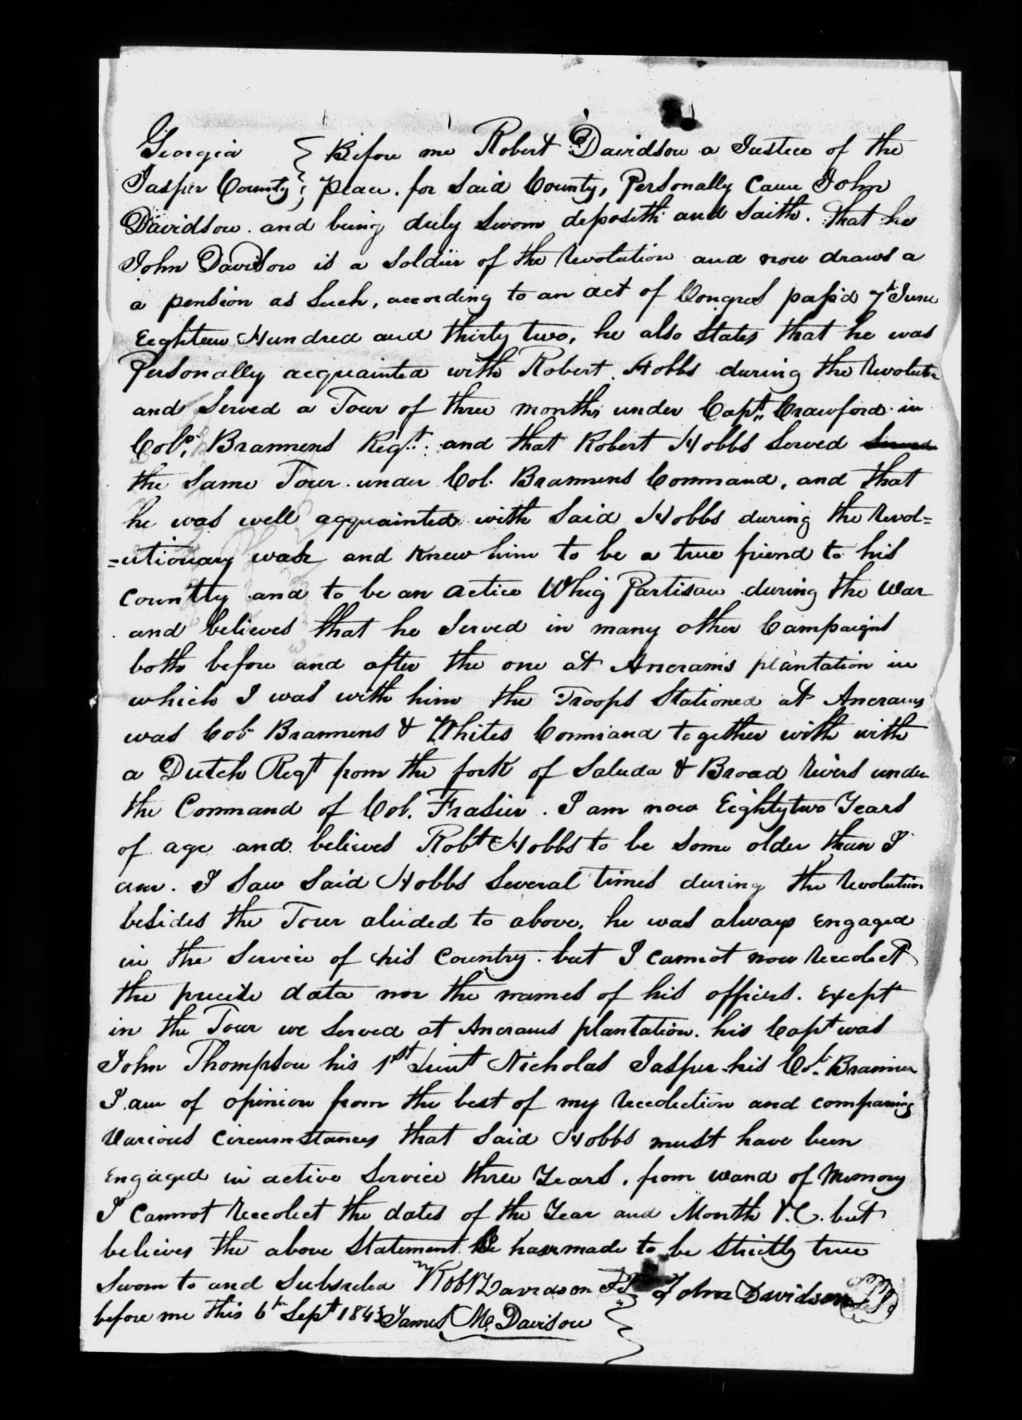 Georgia } Before me Robert Davidson a Justice of the
Jasper County } peace. for Said County, Personally Came John
Davidson. and being duly Sworn deposeth and Saith. that he
John Davidson is a Soldier of the revolution and now draws a
a pension as Such, according to an act of Congress passd 7th June
Eighteen Hundred and thirty two, he also States that he was
Personally acquainted with Robert Hobbs during the Revolutn
and Served a Tour of three months under Capt. Crawford in
Colo. Brannens Regt. and that Robert Hobbs Served
the Same Tour under Col. Brannens Command, and that
he was well acquainted with Said Hobbs during the Revol=
=utionary war and knew him to be a true friend to his
Country and to be an active Whig Partisan during the War
and believes that he Served in many other Campaigns
both before and after the one at Ancrams plantation in
which I was with him the Troops Stationed at Ancrams
was Col. Brannens & Whites Command together with with
a Dutch Regt from the fork of Saluda & Broad rivers under
the Command of Col. Frasier. I am now Eightytwo Years
of age and believes Robt Hobbs to be Some older than I
am. I Saw Said Hobbs Several times during the revolution
besides the Tour aluded to above, he was always Engaged
in the Service of his Country. but I cannot now recolect
the precise data nor the names of his officers. Except
in the Tour we Served at Ancrams plantation. his Capt was
John Thompson his 1st Lieut Nicholas Jasper his Col. Brannen
I am of opinion from the best of my recolection and comparing
Various circumstances that Said Hobbs must have been
Engaged in active Service three Years. from wand of Memory
I Cannot recolect the dates of the Year and Month &.C. but
believes the above Statement he have made to be Strictly true
Sworn to and Subscribed Robt Davidson J.P. John Davidson
before me this 6th Sept 1843 James Mc Davison